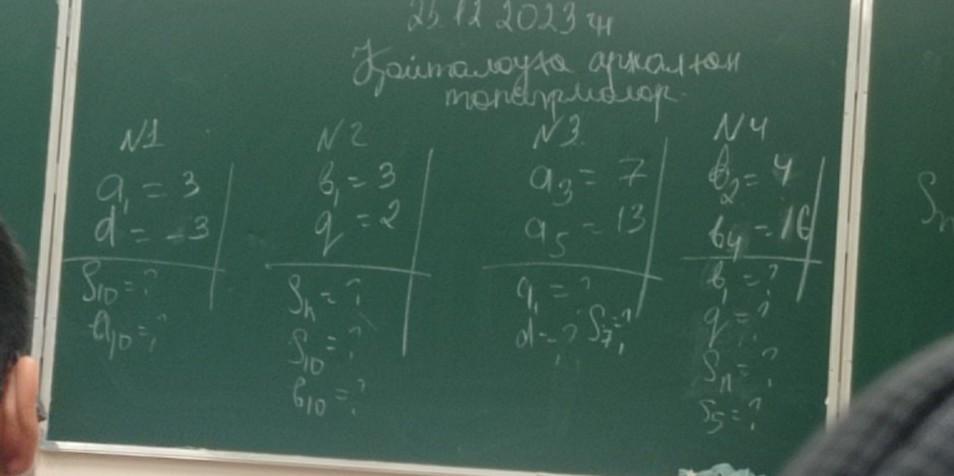 25.12.2023 жн
Қайталауға арналған
тапсырмалар.
N1
a₁ = 3
d = -3
S₁₀ = ?
a₁₀ = ?
N2
b₁ = 3
q = 2
Sₙ = ?
S₁₀ = ?
b₁₀ = ?
N3.
a₃ = 7
a₅ = 13
a₁ = ?
d = ? S₇ = ?
N4
b₂ = 4
b₄ = 16
b₁ = ?
q = ?
Sₙ = ?
S₅ = ?